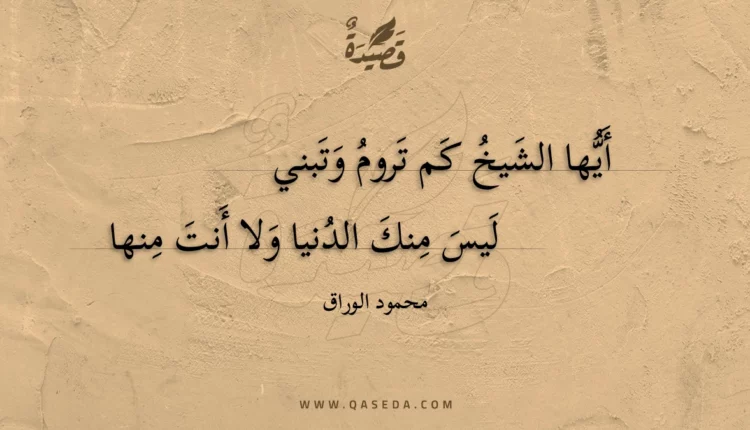 قَصِيْدَةٌ
أَيُّها الشَيخُ كَم تَرومُ وَتَبني
لَيسَ مِنكَ الدُنيا وَلا أَنتَ مِنها
محمود الوراق
WWW.QASEDA.COM